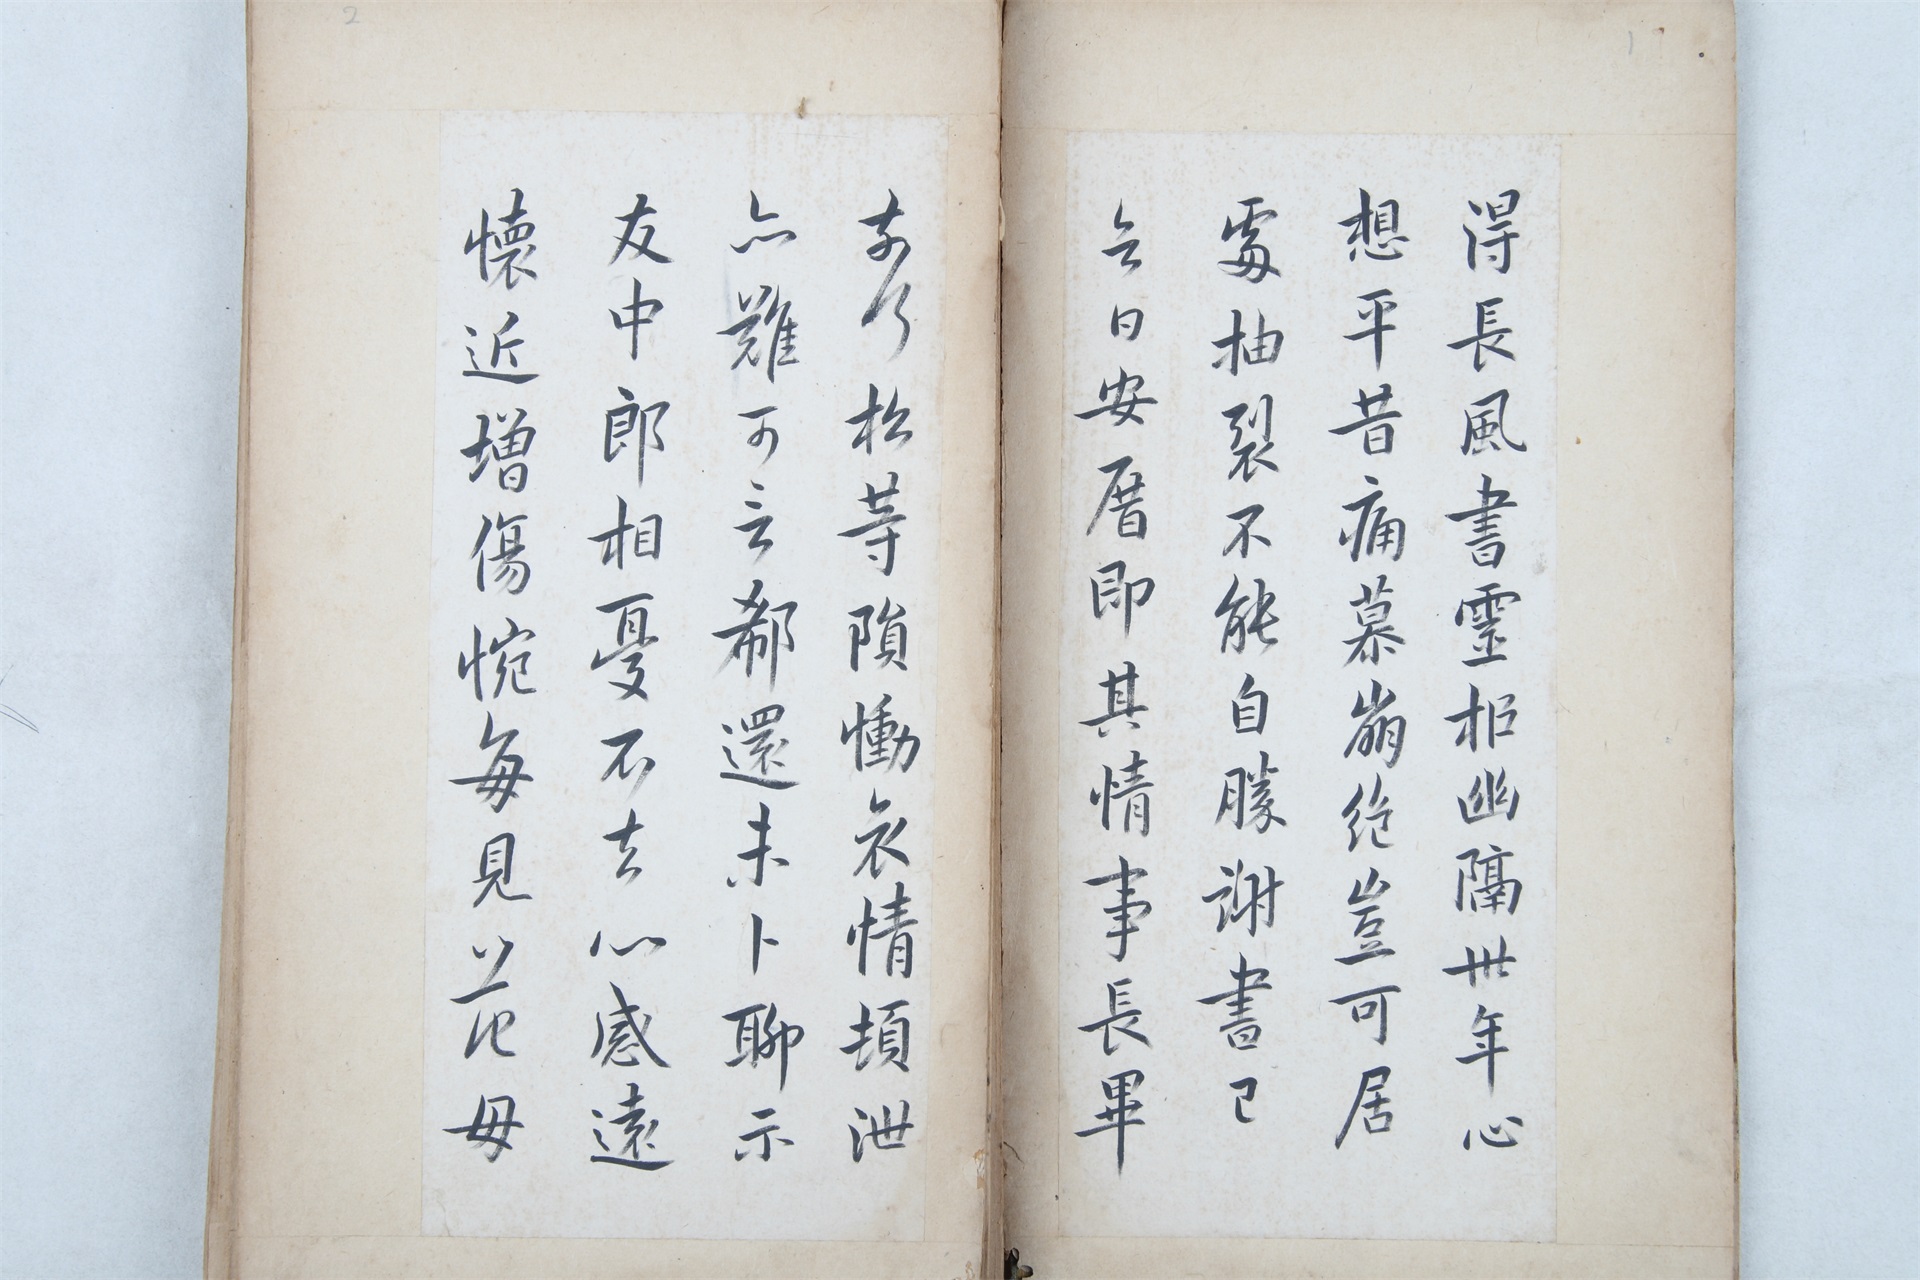 1
得長風書靈柩幽隔卅年心
想平昔痛慕崩絶豈可居
處抽裂不能自勝謝書已
云日安厝即其情事長畢
2
奈何松等隕慟哀情頓泄
亦難可言郗還未卜聊示
友中郎相憂不去心感遠
懷近增傷惋每見范母